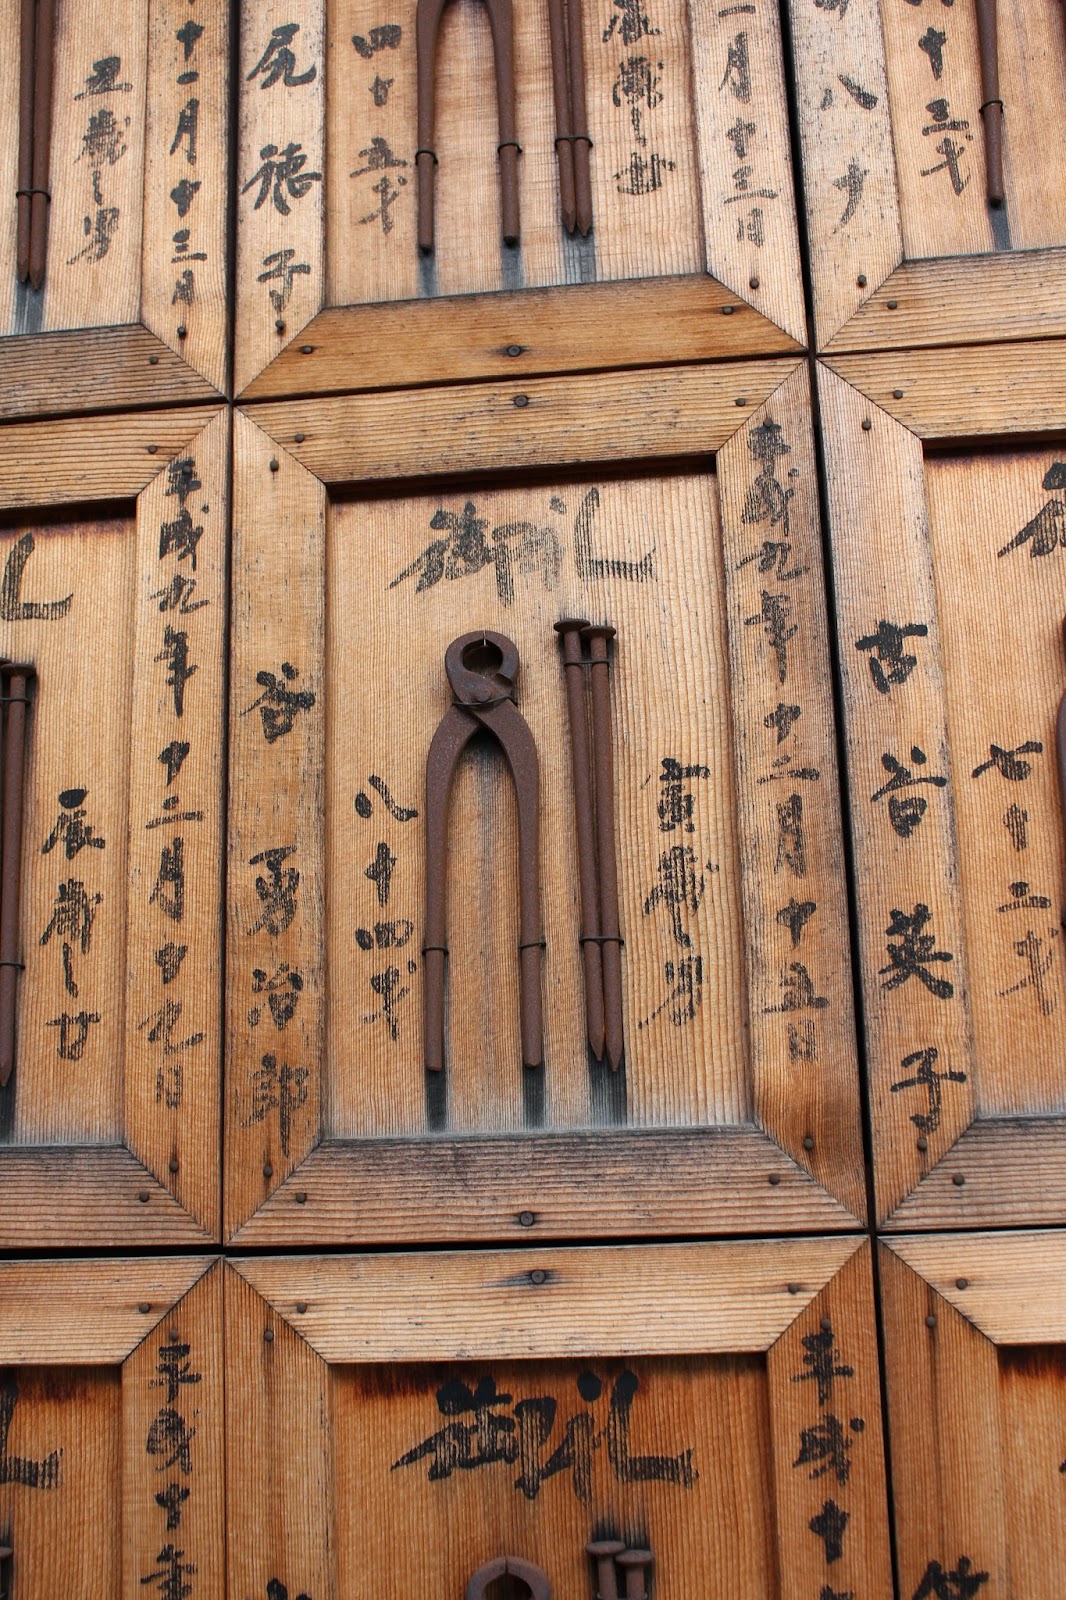 一月十三日
辰歳之女
四十五才
尻徳子
十一月十三日
丑歳之男
古谷英子
平成九年十二月十五日
御礼
寅歳之男
八十四才
谷勇治郎
平成九年十二月十九日
辰歳之女
平成十
御礼
平成十年